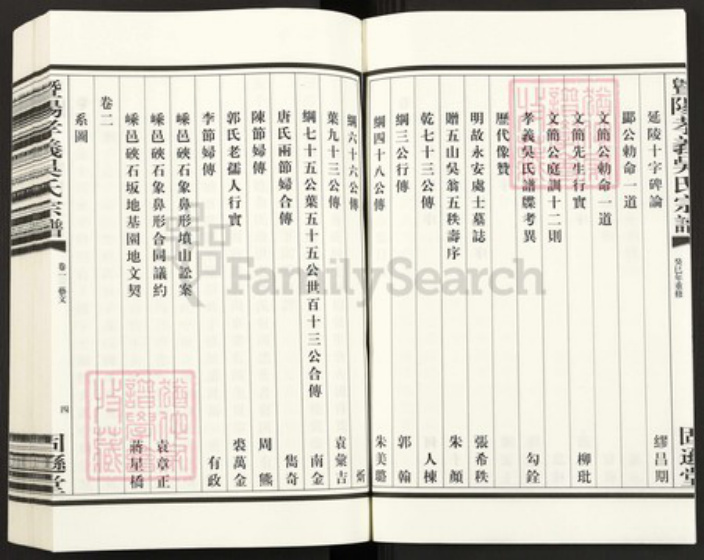 暨陽孝義吳氏宗譜
癸巳年重修
固遜堂
延陵十字碑論 繆昌期
鄙公勅命一道
文簡公勅命一道
文簡先生行實 柳玭
文簡公庭訓十二則
孝義吳氏譜牒考異 勾銓
歷代像贊
明故永安處士墓誌 張希秩
贈五山吳翁五秩壽序 朱顏
乾七十三公傳 人棟
綱三公行傳 郭翰
綱四十八公傳 朱美璐
綱六十六公傳 炘
葉九十三公傳 袁彙吉
綱七十五公葉五十五公世百十三公合傳 南金
唐氏兩節婦合傳 雋奇
陳節婦傳 周熊
郭氏老孺人行實 裘萬金
李節婦傳 有政
嵊邑硤石象鼻形墳山訟案
嵊邑硤石象鼻形合同議約 袁章正
嵊邑硤石坂地基園地文契 蔣星橋
卷二
系圖
暨陽孝義吳氏宗譜
卷一 藝文
四
固遜堂
FamilySearch